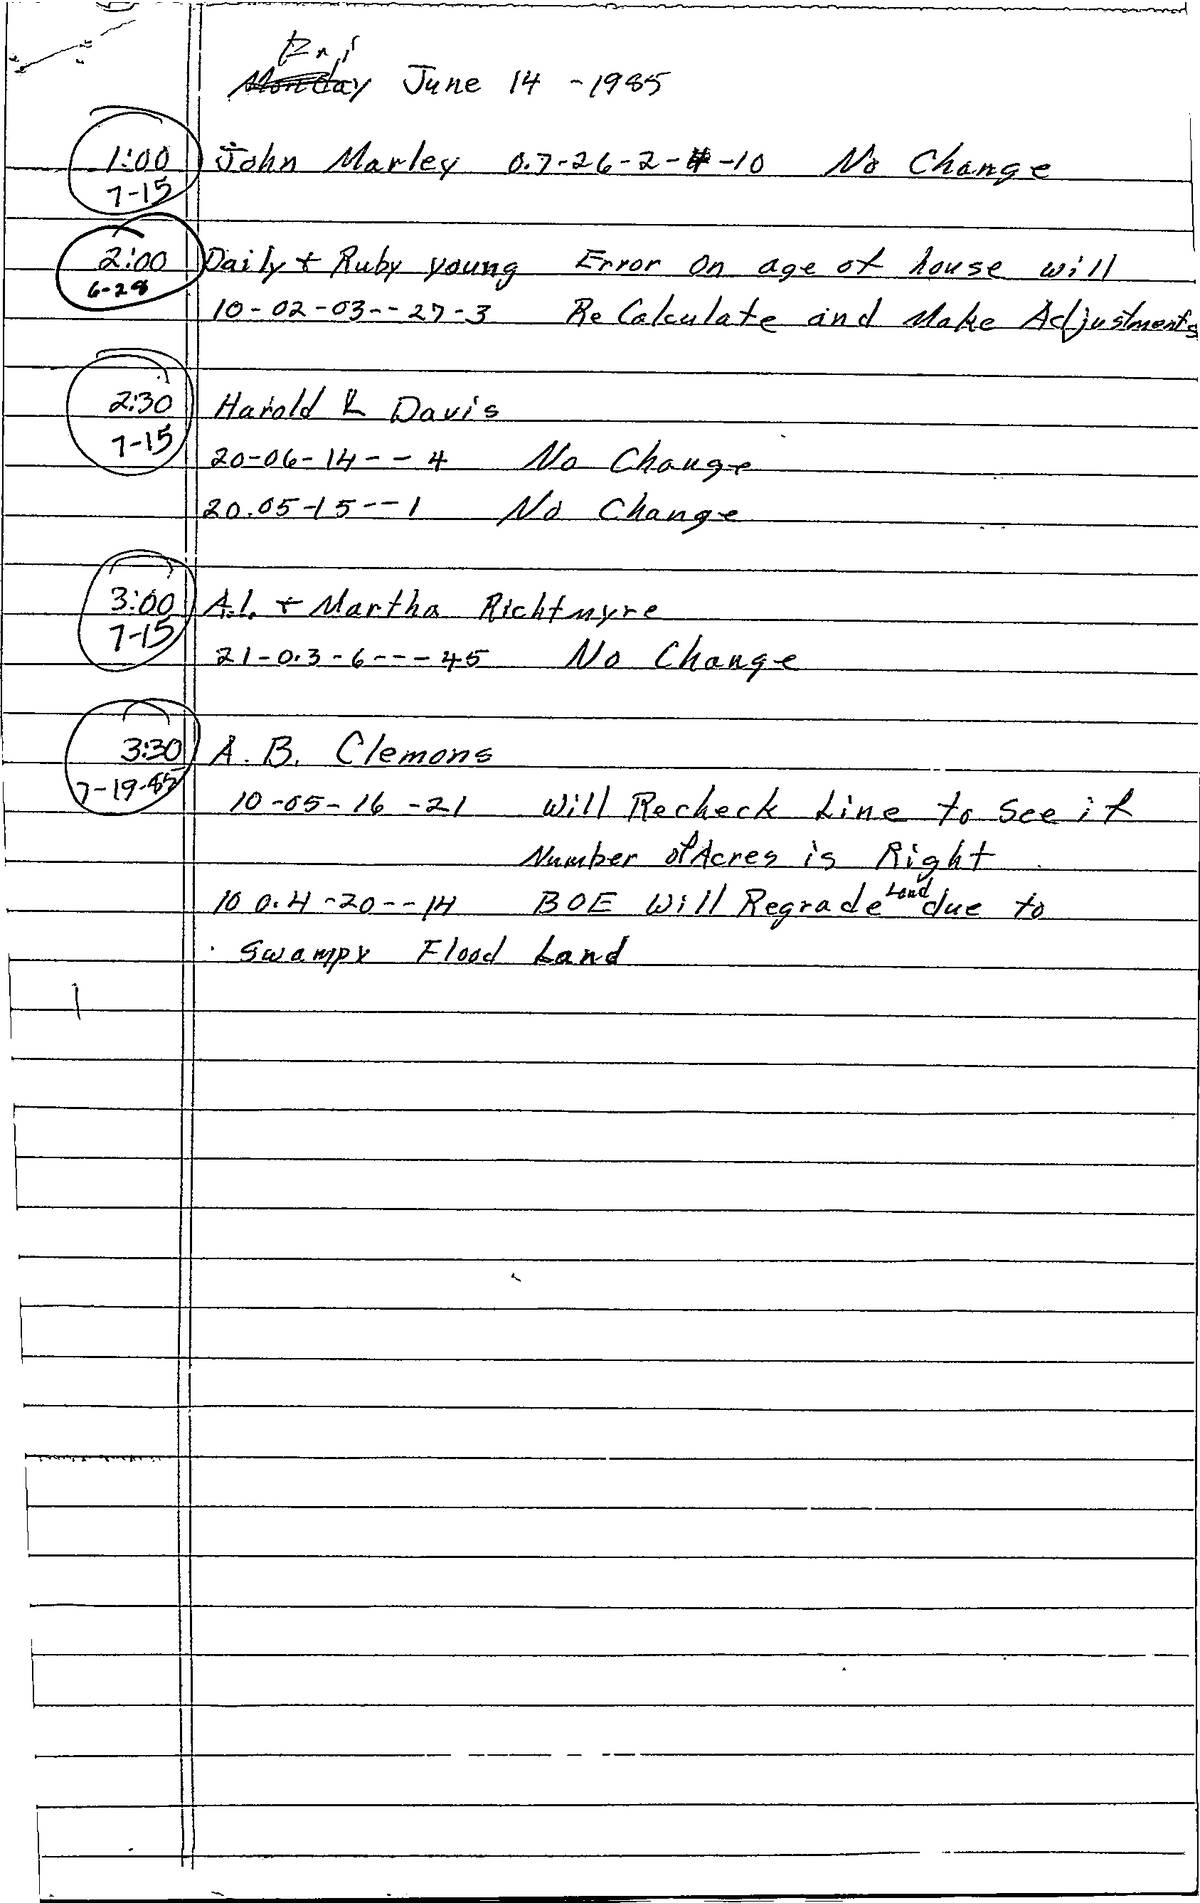 Fri
Monday June 14 - 1985
1:00 John Marley 0.7-26-2-4-10 No Change
7-15
2:00 Daily + Ruby young Error on age of house will
6-28
10-02-03--27-3 ReCalculate and Make Adjustments
2:30 Harold L Davis
7-15
20-06-14--4 No Change
20.05-15--1 No Change
3:00 A.I. + Martha Richtmyre
7-15
21-0.3-6---45 No Change
3:30 A.B. Clemons
7-19-85
10-05-16-21 will Recheck Line to See if
Number of Acres is Right
10 0.4-20--14 BOE Will Regrade Land due to
Swampy Flood Land